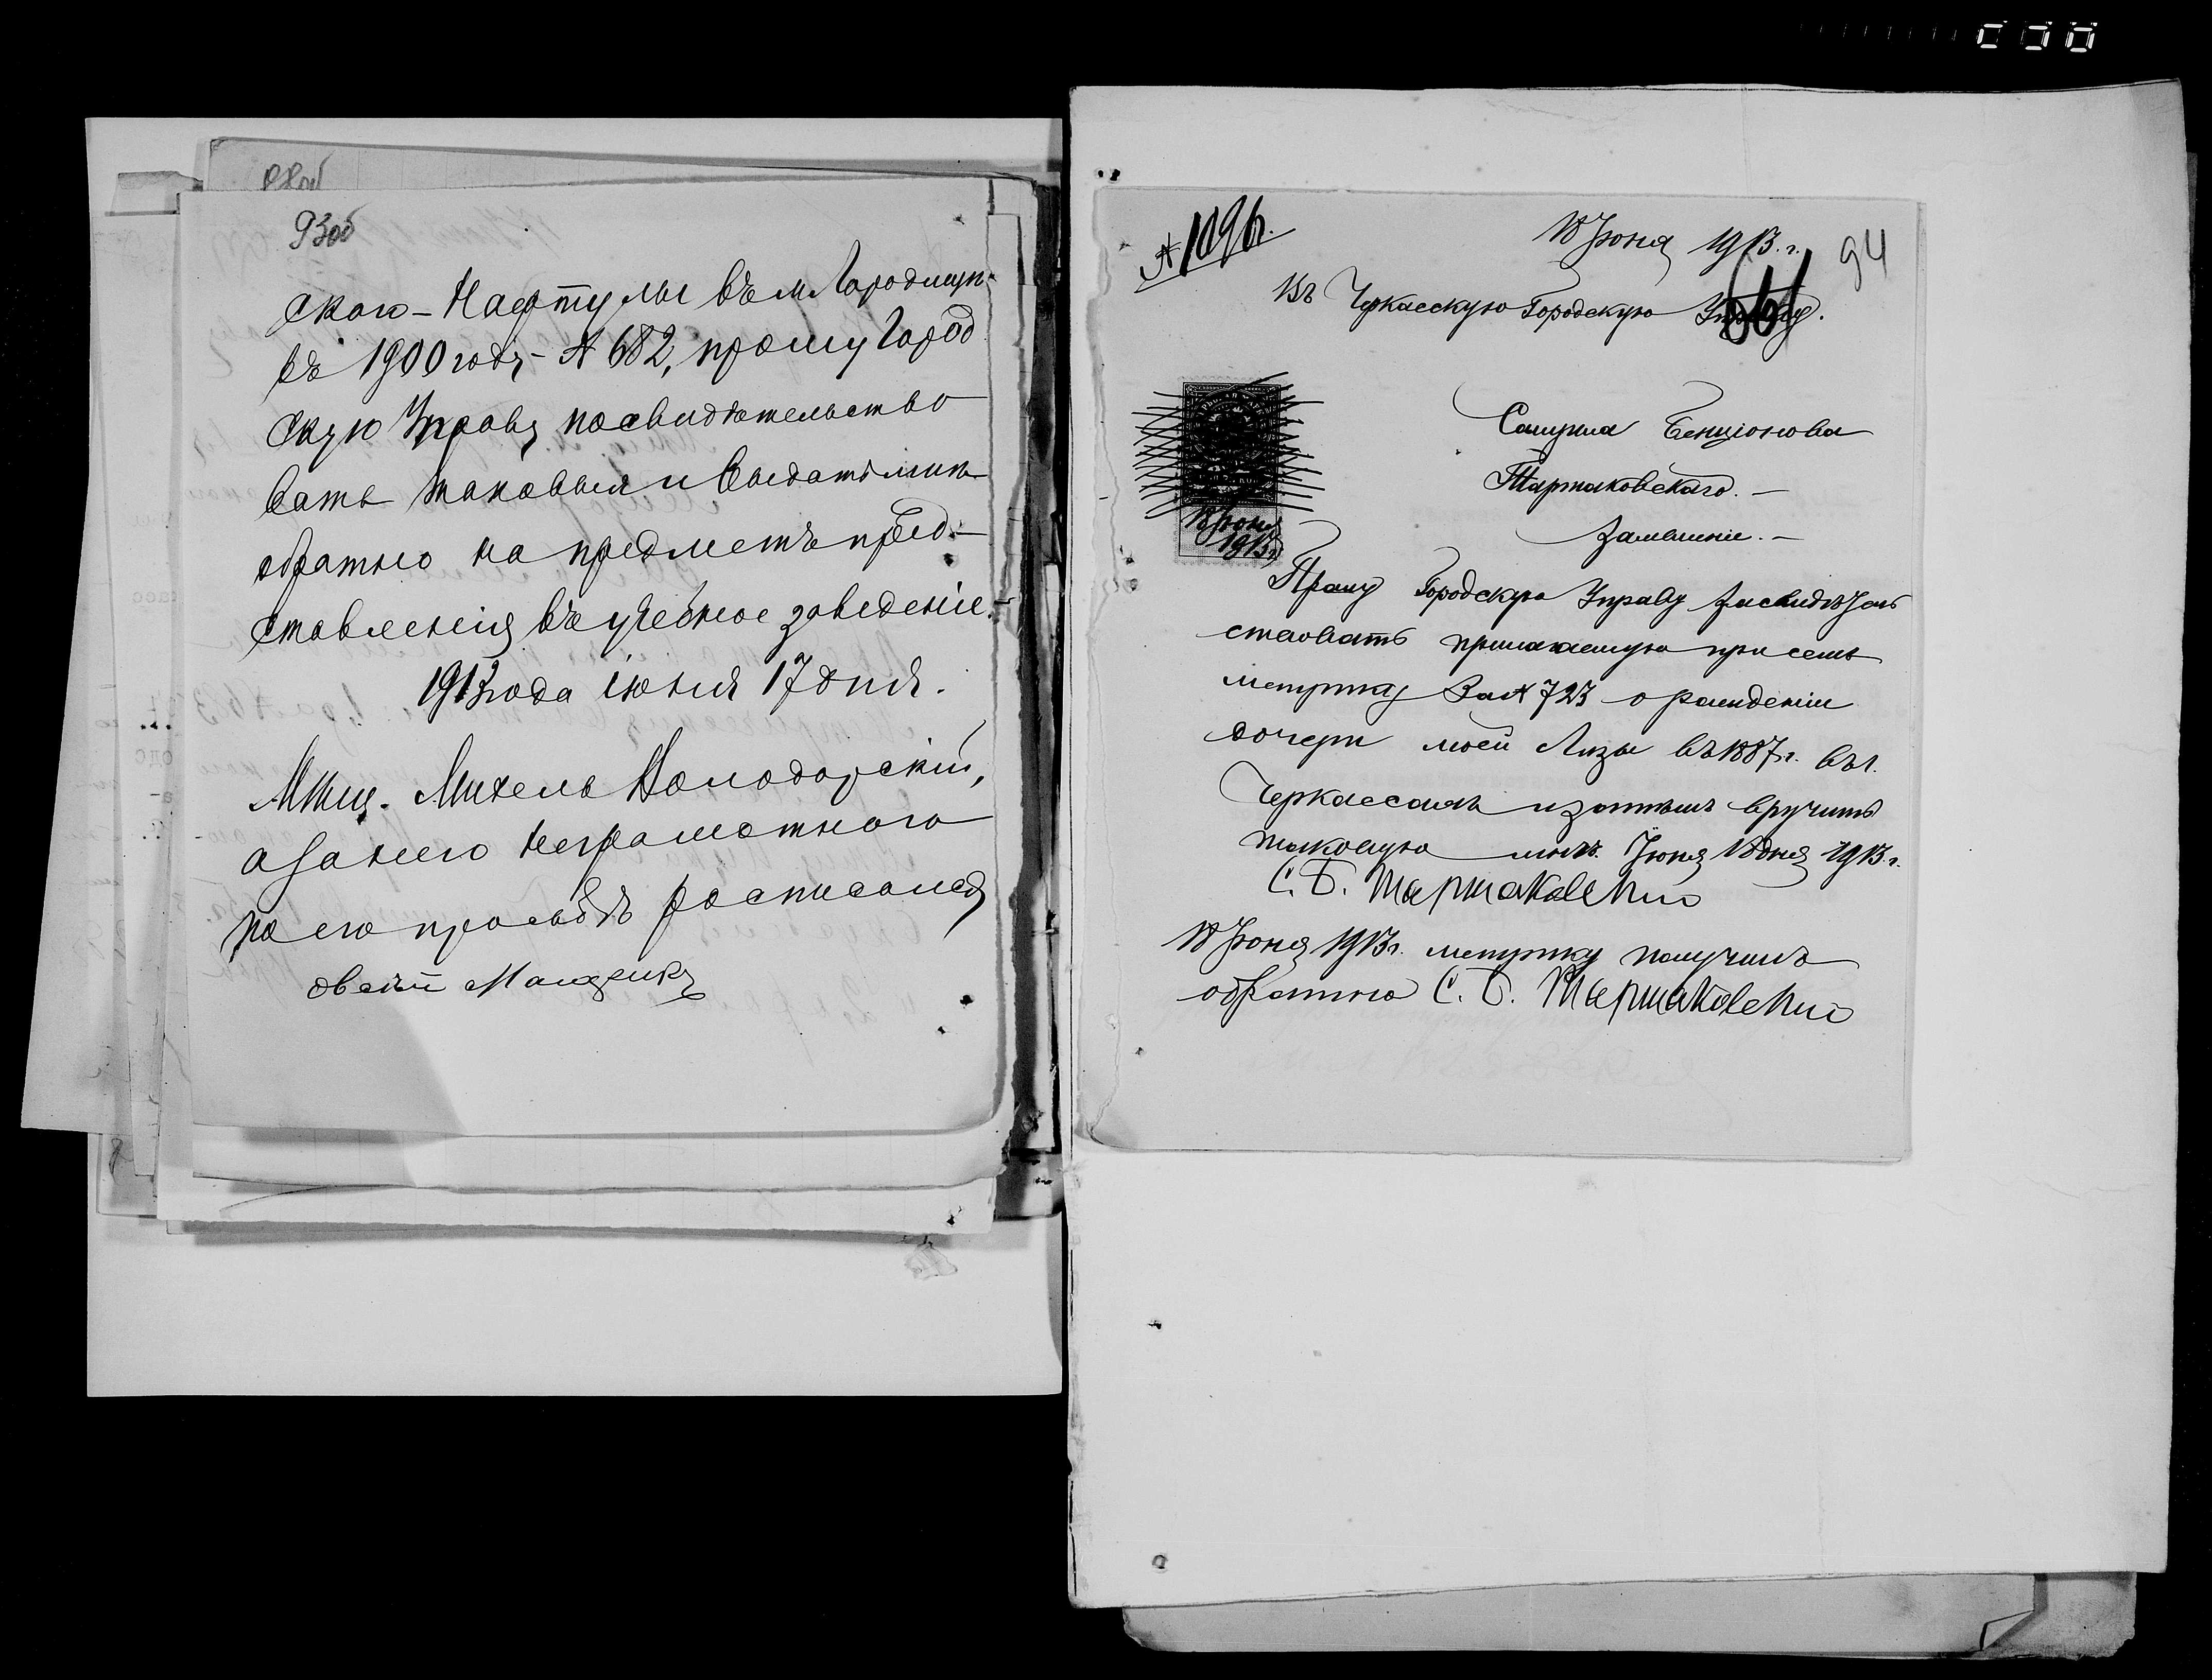 93об
скаго – Нафтулы въ м. Городищѣ
въ 1900 году – № 682, прошу Город
скую Управу посвидѣтельство
вать таковыя и выдать мнѣ
обратно на предметъ пред-
ставленія въ учебное заведеніе.
1913 года іюня 17 дня.
Мѣщ. Михель Володарскій,
а за него неграмотнаго
по его просьбѣ росписался
№ 1096.
18 Іюня 1913 г.
94
Въ Черкасскую Городскую Управу.
Самуила Бенціонова
Тартаковскаго. –
Заявленіе. –
18 Іюня
1913 г.
Прошу Городскую Управу засвидѣтель
ствовать прилагаемую при семъ
метрику за № 723 о рожденіи
дочери моей Лизы въ 1887 г. въ г.
Черкассахъ и затѣмъ вручить
таковую мнѣ. Іюня 18 дня 1913 г.
С. Б. Тартаковскій
18 Іюня 1913 г. метрику получилъ
обратно С. Б. Тартаковскій